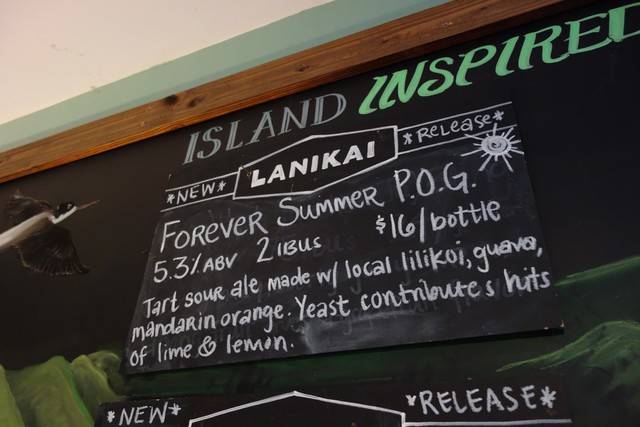 ISLAND INSPIRED
*NEW* LANIKAI *RELEASE*
FOREVER SUMMER P.O.G.
5.3% ABV 2 IBUS $16/bottle
Tart sour ale made w/ local lilikoi, guava,
mandarin orange. Yeast contributes hits
of lime & lemon.
*NEW* *RELEASE*